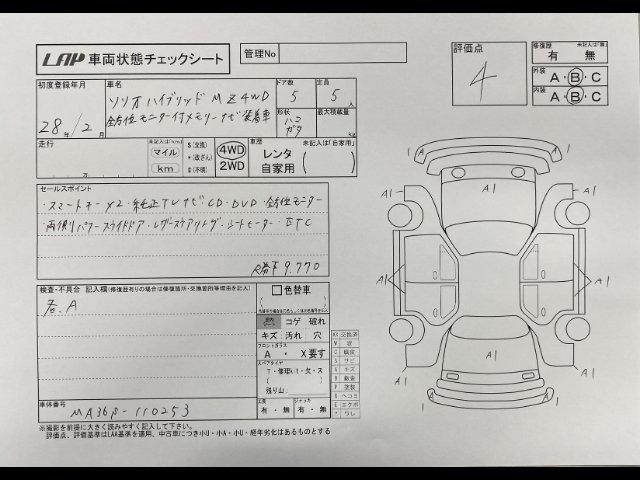 LAP 車両状態チェックシート
管理No
評価点
4
修復歴 未記入は「無」
有 ・ 無
外装 A・B・C
内装 A・B・C
初度登録年月
28年/2月
車名
ソリオハイブリッド MZ4WD
全方位モニター付メモリーナビ装着車
ドア数
5
定員
5人
形状
ハコ
ガタ
最大積載量
kg
走行
万
未記入は「km」
マイル
km
$(交換)
*(改ざん)
#(不明)
4WD
2WD
車歴 未記入は「自家用」
レンタ
自家用
セールスポイント
・スマートキー×2・純正TVナビ・CD・DVD・全方位モニター
・両側パワースライドドア・レザーステアリング・シートヒーター・ETC
R券¥9,770
検査・不具合 記入欄(修復歴有りの場合は修復箇所・交換箇所等理由を記入)
若.A
色替車
コゲ 破れ
キズ 汚れ 穴
フロントガラス
A ・ X要す
スペアタイヤ
T・修理kit・欠・ス
残り山
工具
有・無
ジャッキ
有・無
XX 交換済
W 波
C 腐食
S サビ
A キズ
U ヘコミ
E エクボ
Y ワレ
車体番号
MA36S-110253
※撮影を前提に大きく読みやすく記入して下さい。
評価点、評価基準はLAA基準を適用、中古車につき小U・小A・小U・経年劣化はあるものとする
1
A1
1
A1
A1
A1
A1
A1
A1
A1
A1
1
A1
1